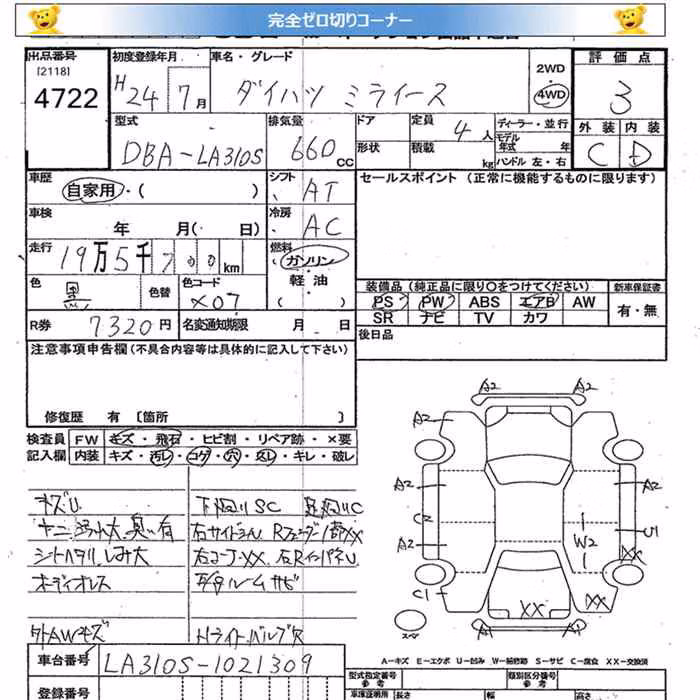 完全ゼロ切りコーナー
出品番号 初度登録年月 車名・グレード 2WD 評価点
[2118]
4722 H24 7月 ダイハツ ミライース 4WD 3
型式 排気量 ドア 定員 4人 ディーラー・並行 外装 内装
モデル年式 年
DBA-LA310S 660cc 形状 積載 kg ハンドル 左・右 C D
車歴 シフト セールスポイント (正常に機能するものに限ります)
自家用・( ) AT
車検 冷房
年 月( 日) AC
走行 19万5千700km 燃料 ガソリン
色 色替 色コード 軽油
黒 X07 ( )
装備品(純正品に限り○をつけてください) 新車保証書
PS PW ABS エアB AW 有・無
SR ナビ TV カワ
R券 7320円 名変通知期限 月 日
後日品
注意事項申告欄(不具合内容等は具体的に記入して下さい)
修復歴 有 [箇所 ]
検査員 FW キズ・飛石・ヒビ割・リペア跡・×要
記入欄 内装 キズ・汚レ・コゲ・穴・スレ・キレ・破レ
キズU 下廻りSC
ヤニ 汚れ大 臭い有
シートヘタリ しみ大
オーディオレス
外AWキズ
A2 A2
A2 A2
A2 A2
C2 U1
A2 W2 XX
C1 XX
XX
A1 A1
スペア
A-キズ E-エクボ U-凹み W-補修跡 S-サビ C-腐食 XX-交換済
車台番号 LA310S-1021309
型式指定番号 類別区分番号
参考 参考
登録番号 車庫証明用 長さ 幅 高さ
参考